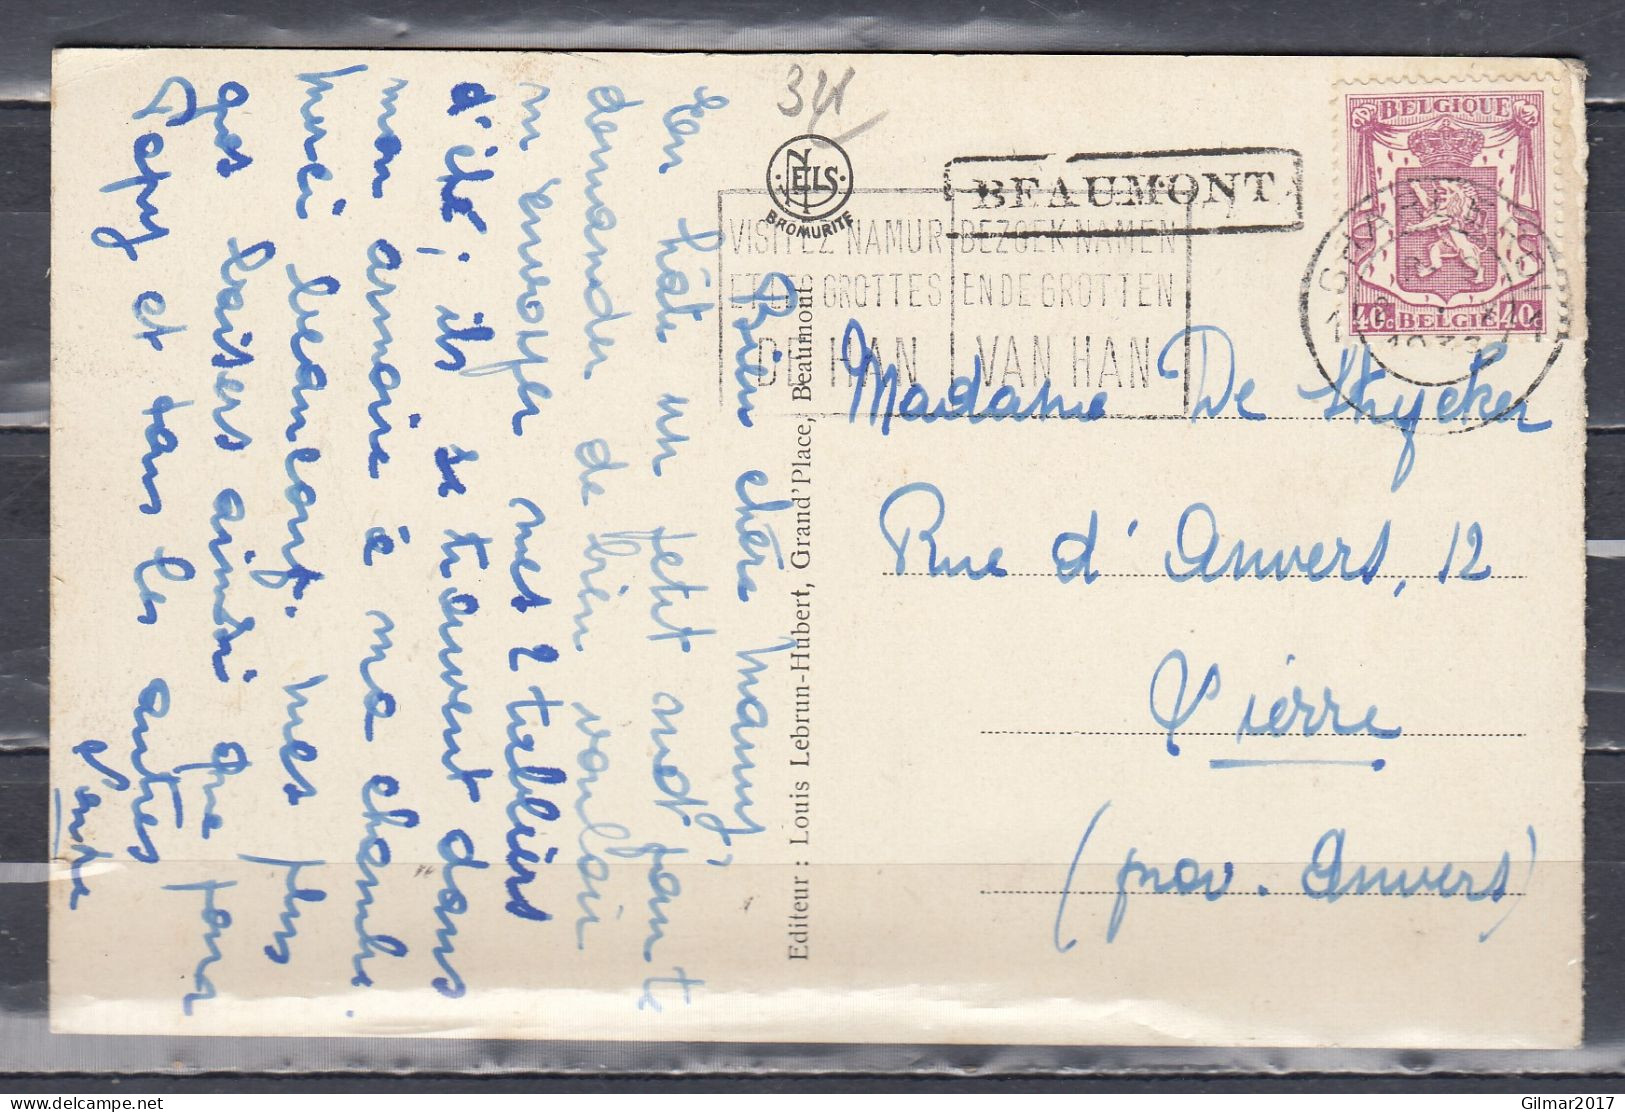 Bien chère Mamy,
En hâte un petit mot pour te
demander de bien vouloir
m'envoyer mes 2 tabliers
d'été; ils se trouvent dans
mon armoire à ma chambre.
Merci beaucoup. Mes plus
gros baisers ainsi que pour
Papy et tous les autres
341
NELS
BROMURITE
Editeur : Louis Lebrun-Hubert, Grand'Place, Beaumont.
VISITEZ NAMUR
ET LES GROTTES
DE HAN
BEZOEK NAMEN
EN DE GROTTEN
VAN HAN
BEAUMONT
BELGIQUE
40c BELGIE 40c
Madame De Strycker
Rue d'Anvers, 12
Lierre
(prov. Anvers)
Gilmar2017